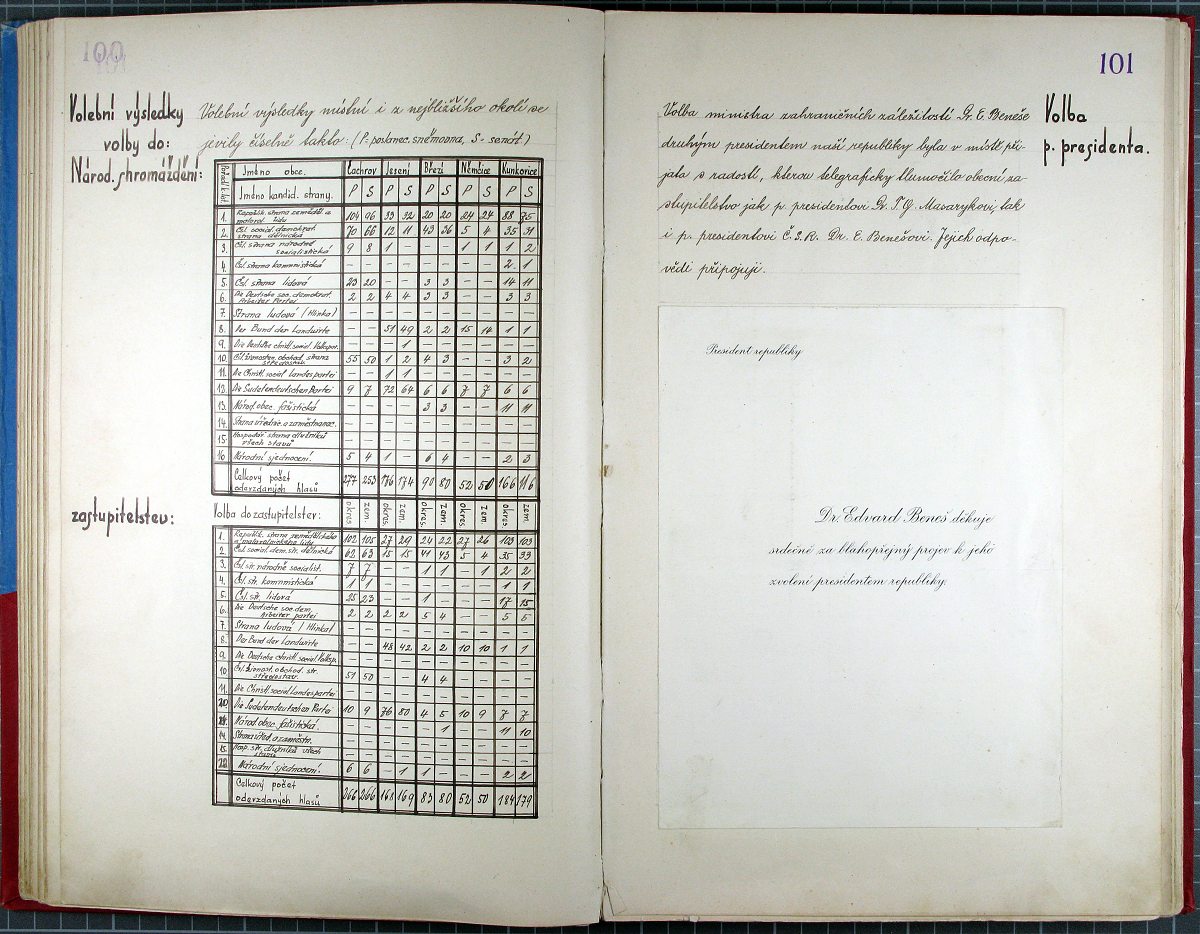 100
Volební výsledky
volby do:
Národ. shromáždění:
Volební výsledky místní i z nejbližšího okolí se
jevily číselně takto: (P = poslanec. sněmovna, S - senát.)
Jméno obce. Čachrov Jesení Březí Němčice Kunkovice
Jméno kandid. strany. P S P S P S P S P S
1. Republik. strana zeměděl. a malorol. lidu 104 96 33 32 20 20 24 24 88 75
2. Čsl. sociál. demokrat. strana dělnická 70 66 12 11 43 36 5 4 35 31
3. Čsl. strana národně socialistická 9 8 1 - - - 1 1 1 2
4. Čsl. strana komunistická - - - - - - - - 2 1
5. Čsl. strana lidová 23 20 - - 3 3 - - 14 11
6. Die Deutsche soc. demokrat. Arbeiter Partei 2 2 4 4 3 3 - - 3 3
7. Strana ludová (Hlinka) - - - - - - - - - -
8. Der Bund der Landwirte - - 51 49 2 2 15 14 1 1
9. Die Deutsche christl. social. Volkspar. - - - 1 - - - - - -
10. Čsl. živnosten. obchod. strana středostav. 55 50 1 2 4 3 - - 3 2
11. Die Christl. social Landespartei - - 1 1 - - - - - -
12. Die Sudetendeutschen Partei 9 7 72 64 6 6 7 7 6 6
13. Národ. obec. fašistická - - - - 3 3 - - 11 11
14. Strana úřednic. a zaměstnanec. - - - - - - - - - -
15. Hospodář. strana dlužníků všech stavů - - - - - - - - - -
16 Národní sjednocení. 5 4 1 - 6 4 - - 2 3
Celkový počet odevzdaných hlasů 277 253 176 174 90 80 52 50 166 116
zastupitelstev:
Volba do zastupitelstev: okres. zem. okres. zem. okres. zem. okres. zem. okres zem.
1. Republik. strana zemědělského a malorolnického lidu 102 105 27 29 24 22 27 26 103 103
2. Čsl. sociál. dem. str. dělnická 62 63 15 15 41 43 5 4 35 33
3. Čsl. str. národně socialist. 7 7 - - 1 1 - 1 2 2
4. Čsl. str. komunistická 1 1 - - - - - - 1 1
5. Čsl. str. lidová 25 23 - - 1 - - - 17 15
6. Die Deutsche soc. dem. Arbeiter partei 2 2 2 2 5 4 - - 5 5
7. Strana ludová (Hlinka) - - - - - - - - - -
8. Der Bund der Landwirte - - 48 42 2 2 10 10 1 1
9. Die Deutsche christl. social. Volksp. - - - - - - - - - -
10 Čsl. živnost. obchod. str. středostav. 51 50 - - 4 4 - - - -
11. Die Christl. social Landespartei - - - - - - - - - -
20. Die Sudetendeutschen Partei 10 9 76 80 4 5 10 9 7 7
Národ. obec fašistická. - - - - - 1 - - 11 10
14. Strana úřed. a zaměstn. - - - - - - - - - -
15. Hosp. str. dlužníků všech stavů - - - - - - - - - -
22. Národní sjednocení. 6 6 - 1 1 - - - 2 2
Celkový počet odevzdaných hlasů 266 266 168 169 83 80 52 50 184 179
101
Volba
p. presidenta.
Volba ministra zahraničních záležitostí Dr. E. Beneše
druhým presidentem naší republiky byla v místě při-
jata s radostí, kterou telegraficky tlumočilo obecní za-
stupitelstvo jak p. presidentovi Dr. T. G. Masarykovi, tak
i p. presidentovi Č. S. R. Dr. E. Benešovi. Jejich odpo-
vědi připojuji.
President republiky
Dr. Edvard Beneš děkuje
srdečně za blahopřejný projev k jeho
zvolení presidentem republiky.